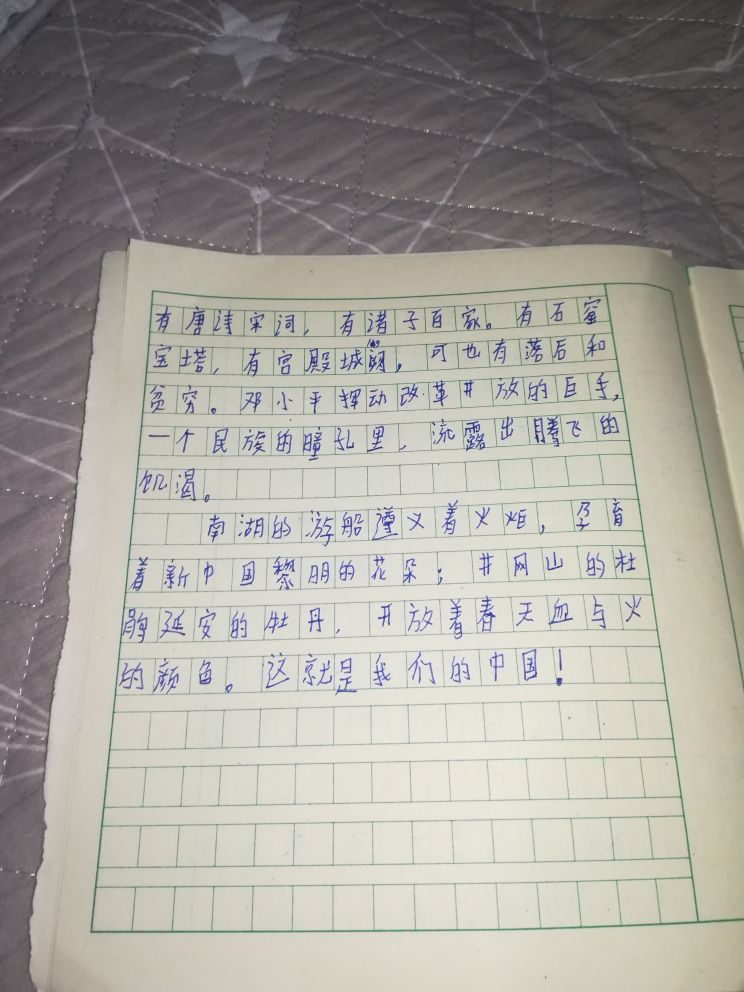 有唐诗宋词，有诸子百家。有石窟
宝塔，有宫殿城阙，可也有落后和
贫穷。邓小平挥动改革开放的巨手，
一个民族的瞳孔里，流露出腾飞的
饥渴。
南湖的游船遵义着火炬，孕育
着新中国黎明的花朵；井冈山的杜
鹃延安的牡丹，开放着春天血与火
的颜色。这就是我们的中国！